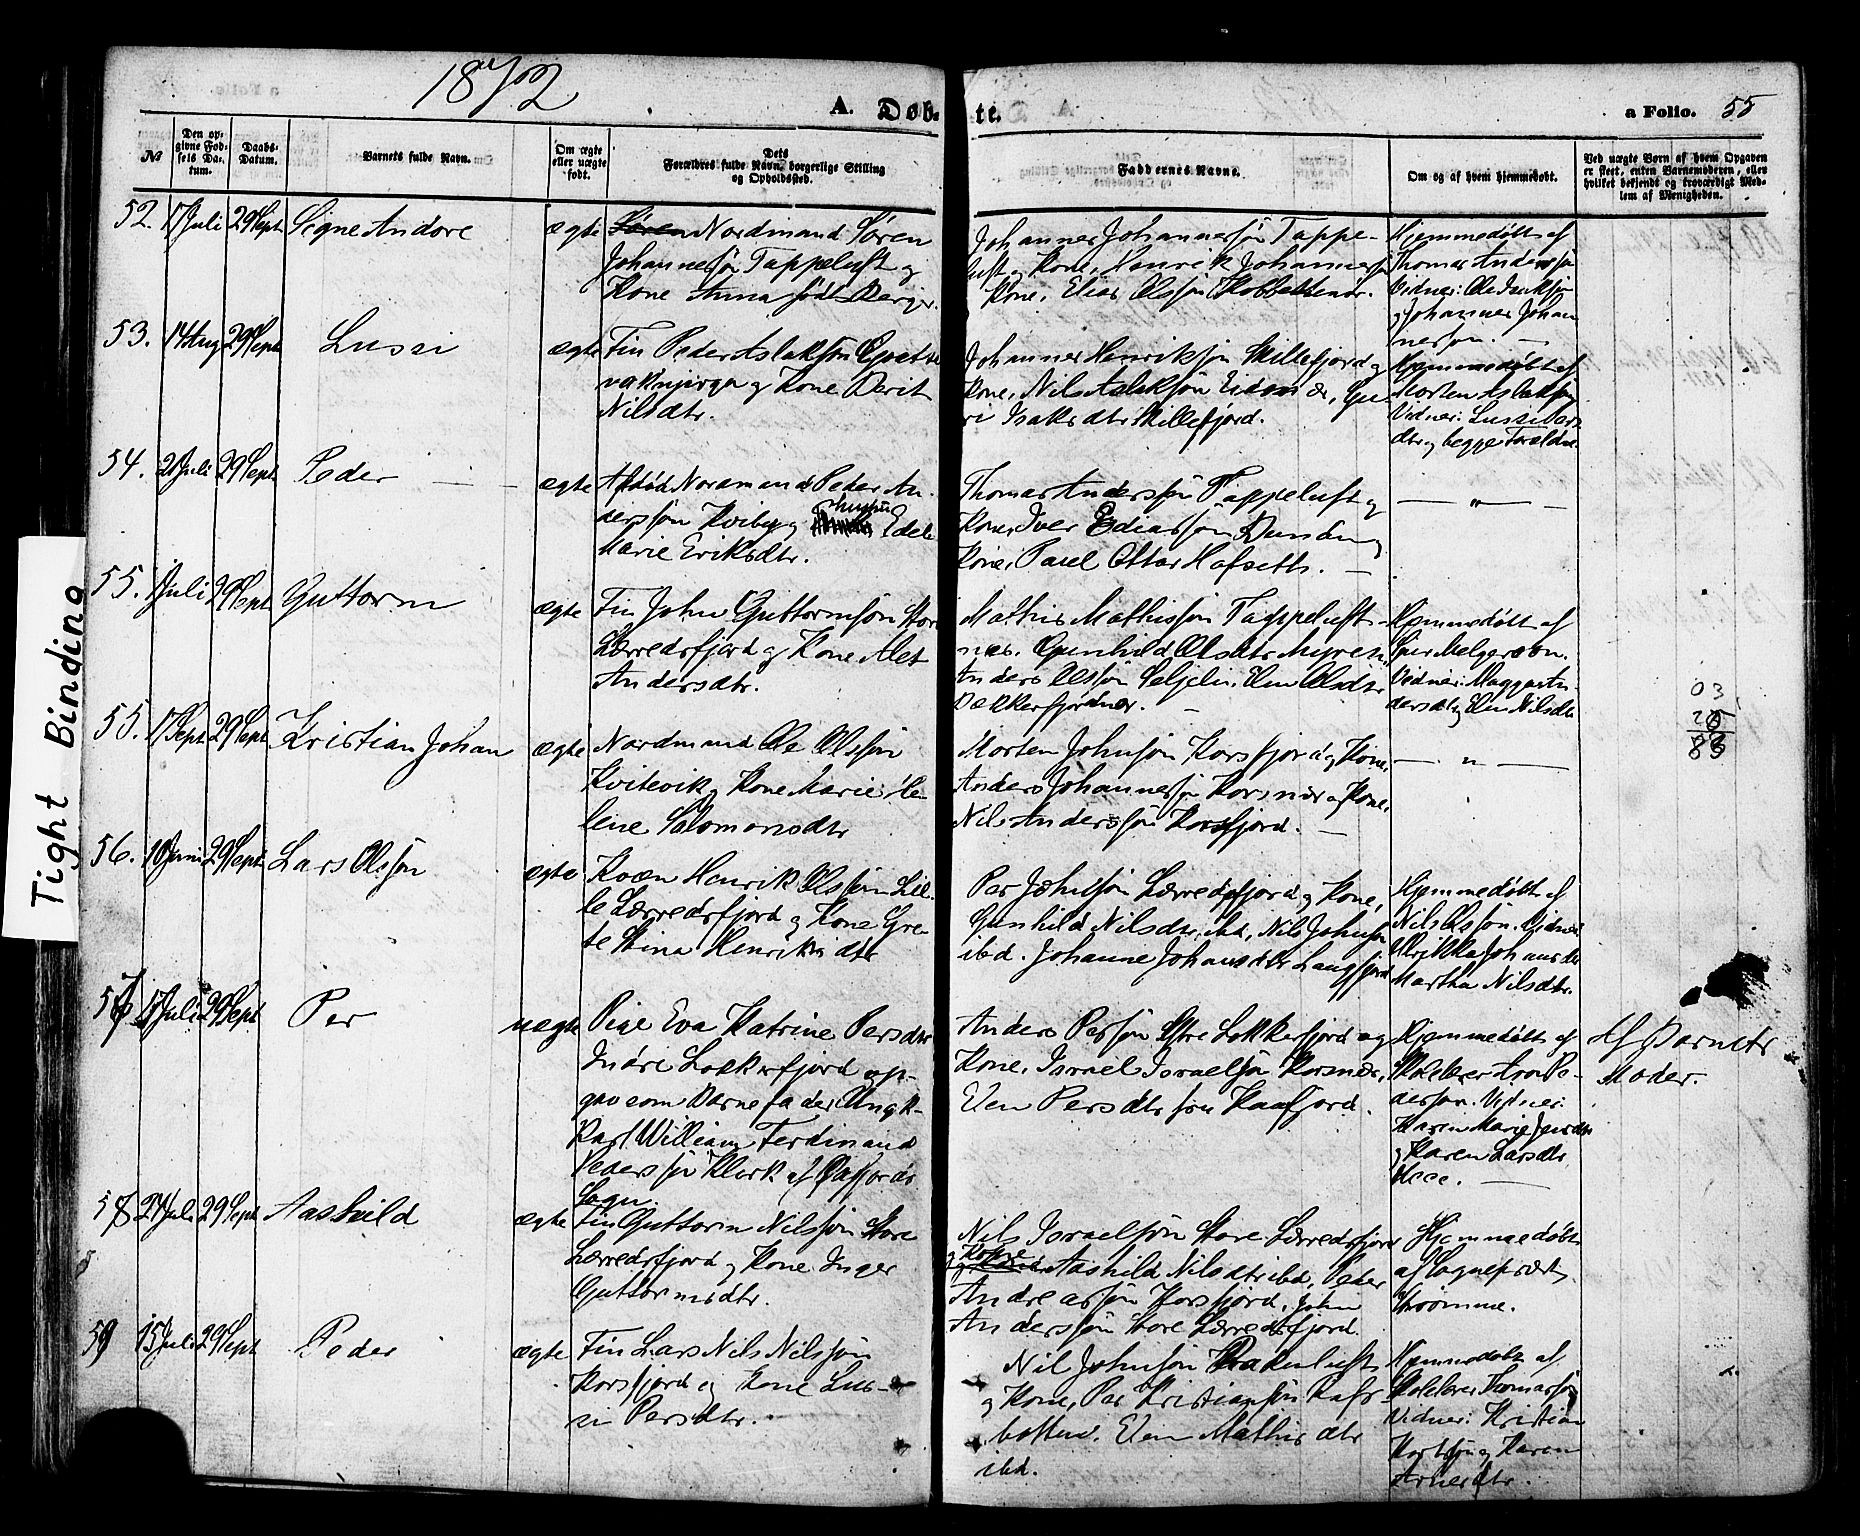 1872
A. Døb-
te.
a Folio. 55
№
Den op-
givne Fød-
sels Da-
tum.
Daabs-
Datum.
Barnets fulde Navn.
Om ægte
eller uægte
født.
Dets
Forældres fulde Navn, borgerlige Stilling
og Opholdssted.
Faddernes Navne.
Om og af hvem hjemmedøbt.
Ved uægte Børn af hvem Opgaven
er skeet, enten Barnemoderen, eller
hvilket bekjendt og troværdigt Med-
lem af Menigheden.
52. 17 Juli 29 Sept. Signe Andore ægte
Søren Nordmand Søren
Johannessøn Tappeluft og
Kone Anna født Berger.
Johannes Johannessøn Tappe-
luft og Kone, Henrik Johannessøn
Kone, Elias Olssøn
Hjemmedøbt af
Thomas Anderssøn
Vidner: Ole Isakssøn
og Johannes Johan
nesson. —
53. 14 Aug 29 Sept. Lussi ægte
Fin Peder Aslakssøn
og Kone Berit
Nilsdtr.
Johannes Henrikssøn Skillefjord og
Kone, Nils Aslakssøn Gu-
ri Isaksdtr Skillefjord.
Hjemmedøbt af
Morten Aslakssøn
Vidner: Lussi Lars
dtr og begge Forældre
54. 21 Juli 29 Sept. Peder — — ægte
Afdød Nordmand Peder An-
derssøn Kviby og Hustru Edel
Marie Eriksdtr.
Thomas Anderssøn Tappeluft og
Kone, Iver Ediassøn
Kone, Paul Ottar Hafseth. —
— " —
55. 1 Juli 29 Sept. Guttorm ægte
Fin John Guttormsøn Store
Lerredsfjord og Kone Alet
Andersdtr.
Mathis Mathissøn Tappeluft-
næs. Gunhild Olsdtr
Anders Olssøn Elen Olsdtr
Hjemmedøbt af
Vidner: Magga An-
dersdtr og Elen Nilsdtr
03
20
83
55. 17 Sept 29 Sept. Kristian Johan ægte
Nordmand Ole Olssøn
Kvitevik og Kone Marie He-
lene Salomonsdtr
Morten Johnsøn Korsfjord og Kone,
Anders Johannessøn Korsnæs og Kone,
Nils Anderssøn Korsfjord. —
— " —
56. 10 Juni 29 Sept. Lars Olssøn ægte
Kvæn Henrik Olssøn Lil-
le Lerredsfjord og Kone Gre-
te Stina Henriksdtr
Per Johnsøn Lerredsfjord og Kone,
Gunhild Nilsdtr ibd, Nils Johnsøn
ibd. Johanne Johansdtr Langfjord
Hjemmedøbt af
Nils Olssøn. Vidner
Ulrikka Johansdtr
Martha Nilsdtr.
57 17 Juli 29 Sept Per uægte
Pige Eva Katrine Persdtr
Indre Lokkerfjord op-
gav som Barnefader Ungk.
Karl William Ferdinand
Pederssøn Klerk af
Sogn.
Anders Persøn Store Lokkerfjord og
Kone, Israel Israelsøn Korsnæs,
Elen Persdtr Kaafjord.
Hjemmedøbt af
Skolelærer Aron Pe-
dersøn. Vidner:
Karen Marie Jensdtr
og Karen Larsdtr
Af Barnets
Moder.
58 27 Juli 29 Sept Aashild ægte
Fin Guttorm Nilssøn Store
Lerredsfjord og Kone Inger
Guttormsdtr.
Nils Israelssøn Store Lerredsfjord
og Kone Aashild Nilsdtr ibd, Peder
Andreassøn Korsfjord, John
Anderssøn Store Lerredsfjord.
Hjemmedøbt
af Sognepræst
Strømme.
59 15 Juli 29 Sept Peder ægte
Fin Lars Nils Nilssøn
Korsfjord og Kone Lus-
si Persdtr.
Nils Johnsøn
og Kone, Per Kristianssøn Rafs-
botten. Elen Mathisdtr
ibd.
Hjemmedøbt af
Skolelærer Thomassøn
Vidner: Kristian
og Karen
Arnesdtr.
Tight Binding